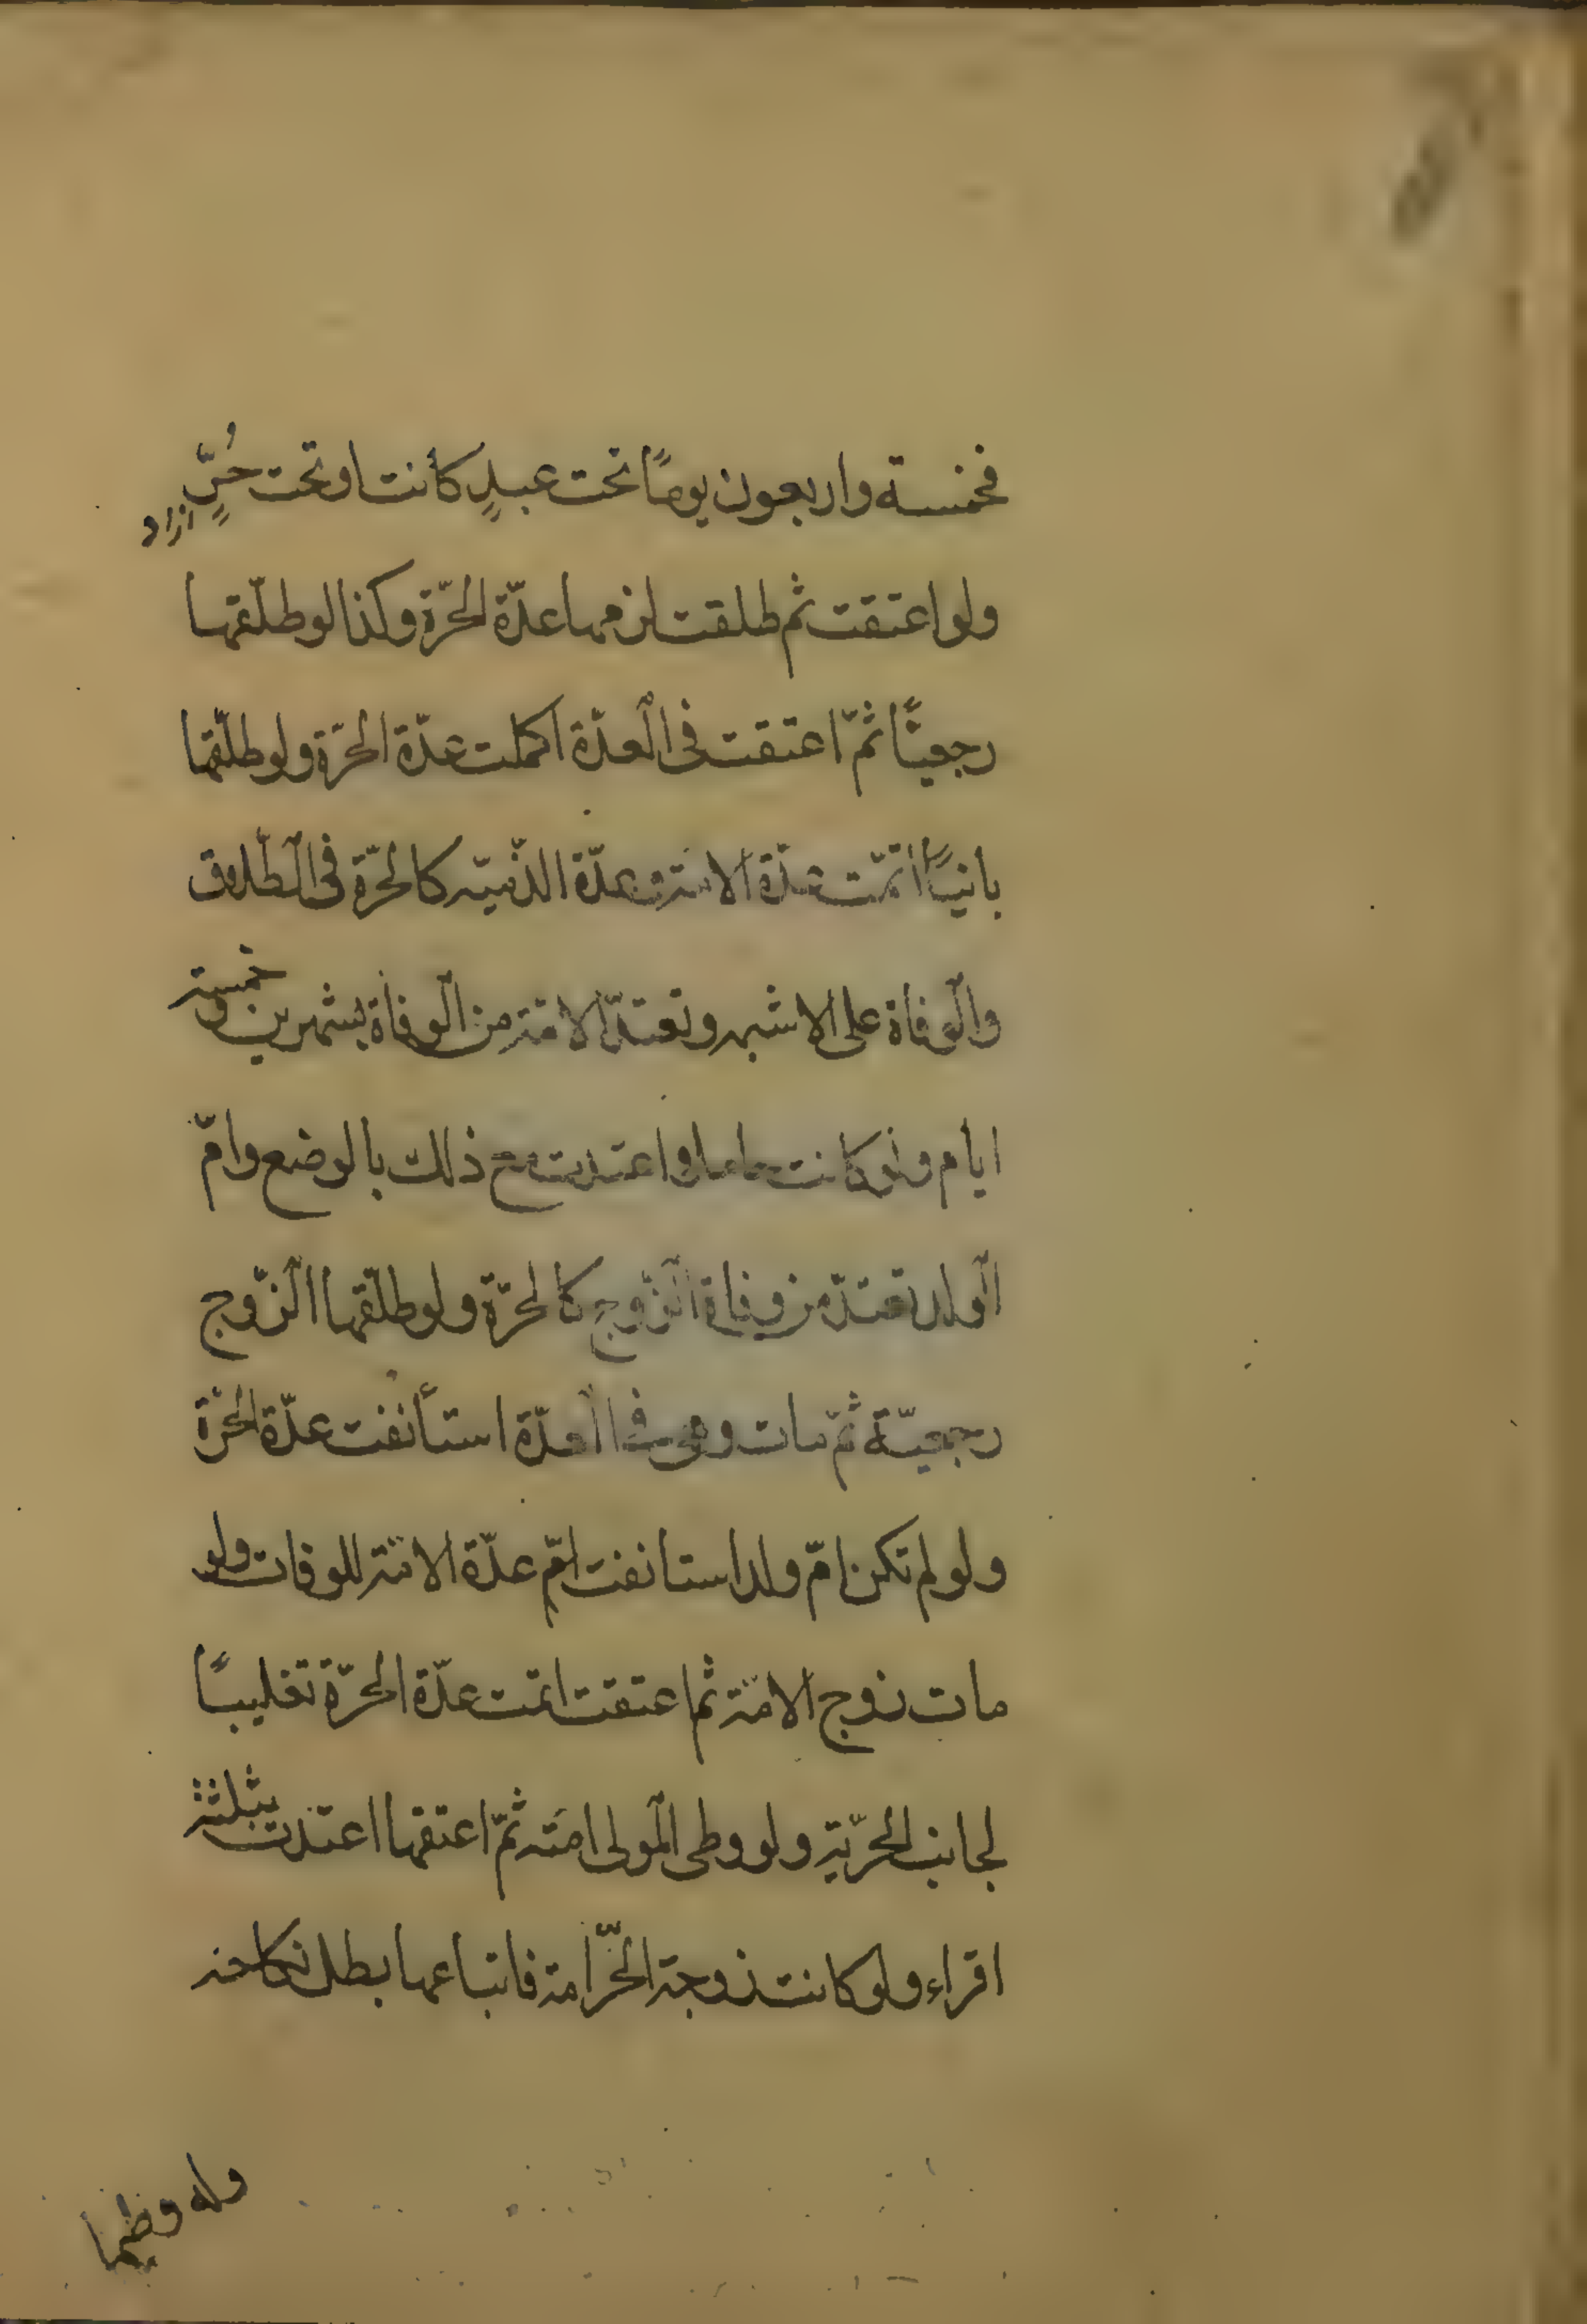 فخمسة واربعون يومًا تحت عبدٍ كانت او تحت حُرٍّ
ازاد
ولو اعتقت ثم طلقت لزمها عدّة الحرّة وكذا لو طلّقها
رجعيًّا ثمّ اعتقت فى العدّة اكملت عدّة الحرّة ولو طلّقها
بانيًا اتمّت عدّة الامة وعدّة الذّميّه كالحرّة فى الطّلاق
والوفاة على الاشبه وتعتدّ الامة من الوفاة بشهرين وخمسة
ايام ولو كانت حاملا واعتدت مع ذلك بالوضع وامّ
الولد تعتدّ من وفاة الزّوج كالحرّة ولو طلّقها الزّوج
رجعيّة ثمّ مات وهى فى العدّة استأنفت عدّة الحرّة
ولو لم تكن امّ ولد استانفت امّ عدّة الامة للوفات ولو
مات زوج الامة ثم اعتقت اتمت عدّة الحرّة تغليبًا
لجانب الحرّية ولو وطى المولى امته ثمّ اعتقها اعتدت بثلثة
اقراء ولو كانت زوجة الحرّ امة فابتاعها بطل نكاحه
وله وطيها